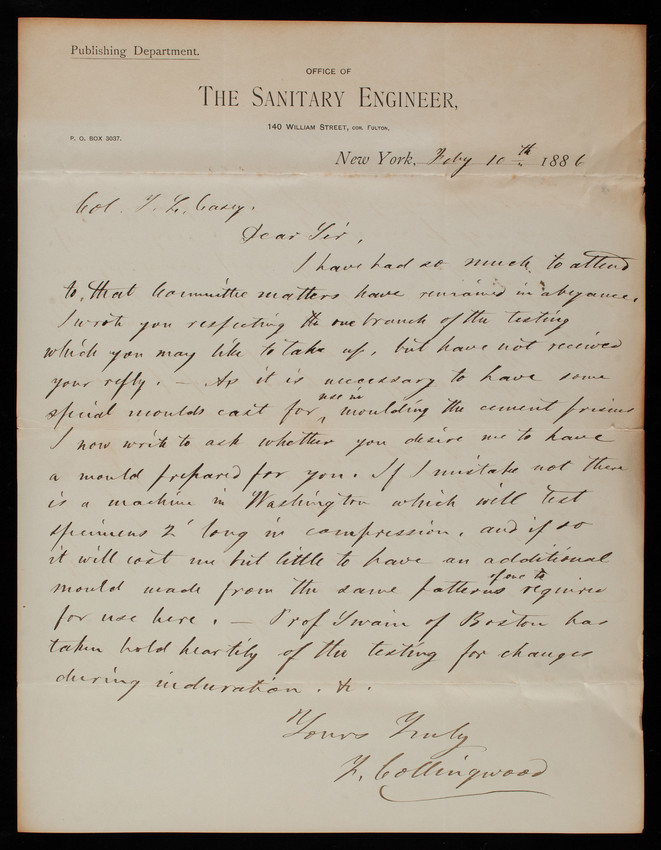 Publishing Department.
OFFICE OF
THE SANITARY ENGINEER,
140 WILLIAM STREET, COR. FULTON,
P. O. BOX 3037.
New York, Feby 10th 1886
Col. T. L. Casey.
Dear Sir,
I have had so much to attend
to, that Committee matters have remained in abeyance.
I wrote you respecting the one branch of the testing
which you may like to take up, but have not received
your reply. — As it is necessary to have some
special moulds cast for use in moulding the cement prisms
I now write to ask whether you desire me to have
a mould prepared for you. If I mistake not there
is a machine in Washington which will test
specimens 2' long in compression, and if so
it will cost me but little to have an additional
mould made from the same patterns of one to required
for use here. — Prof Swain of Boston has
taken hold heartily of the testing for changes
during induration. &.
Yours Truly
F. Collingwood